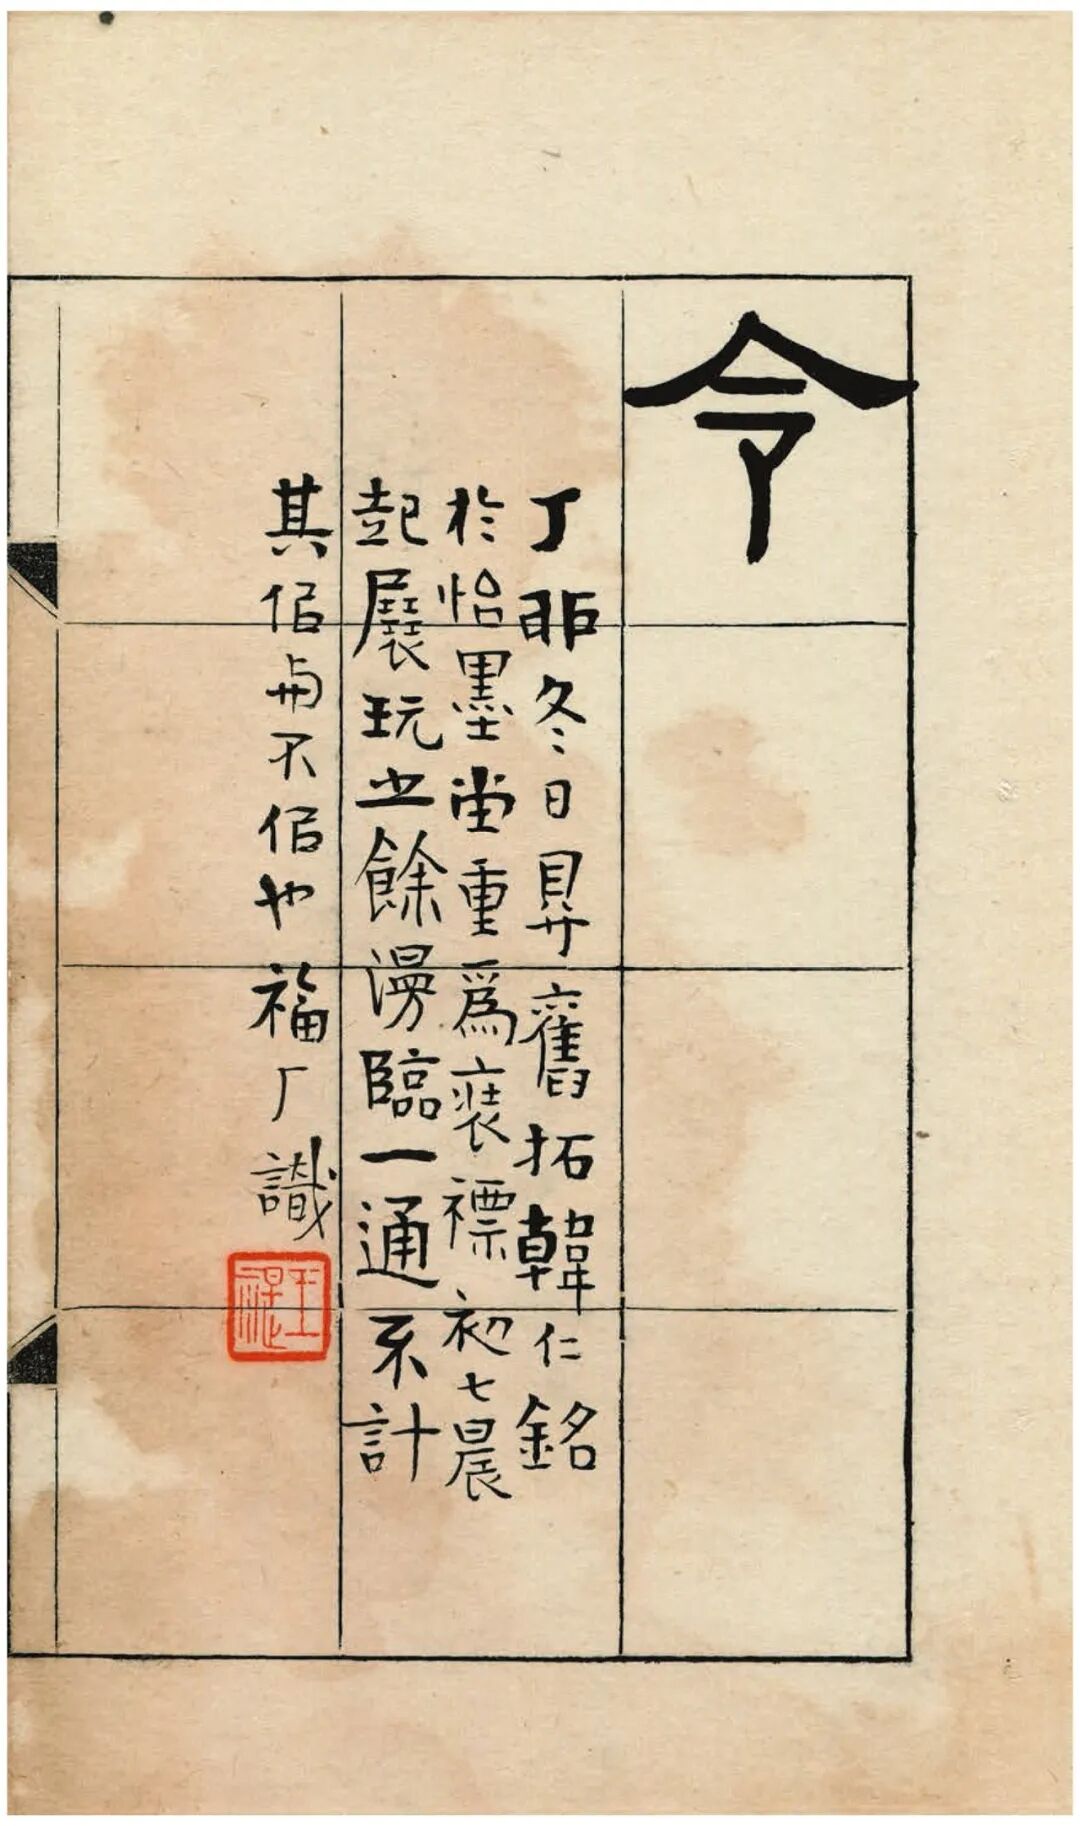 令
丁卯冬日㝵舊拓韓仁銘
於怡墨堂重爲裝褾初七晨
起展玩之餘漫臨一通不計
其佀與不佀也福厂識
王禔